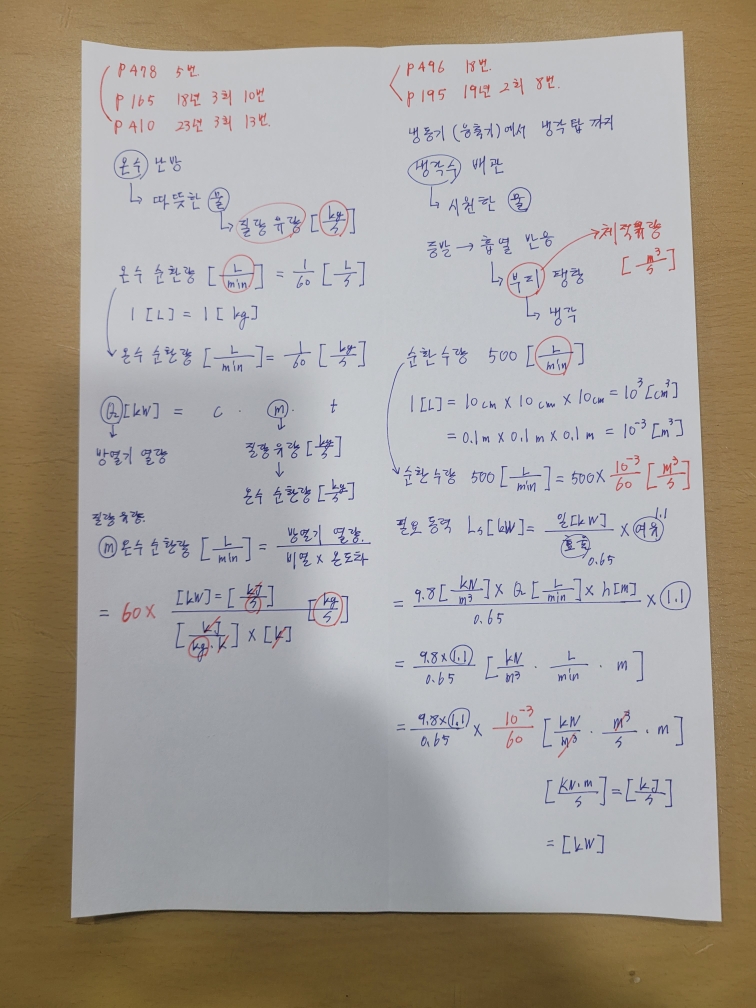 P 478 5번
P 165 18년 3회 10번
P 410 23년 3회 13번.
온수 난방
↳ 따뜻한 물
↳ 질량 유량 [kg/s]
온수 순환량 [L/min] = 1/60 [L/s]
1 [L] = 1 [kg]
온수 순환량 [L/min] = 1/60 [kg/s]
Q [kW] = c · m · t
↓ ↓
방열기 열량 질량 유량 [kg/s]
↓
온수 순환량 [kg/s]
질량 유량.
m 온수 순환량 [L/min] = 방열기 열량. / 비열 × 온도차
= 60 × [kW] = [kJ/s] / [kJ/kg·k] × [k] [kg/s]
P 496 18번.
P 195 19년 2회 8번.
냉동기 (응축기)에서 냉각탑 까지
냉각수 배관
↳ 시원한 물
증발 → 흡열 반응 → 체적유량
↳ 부피 팽창 [m³/s]
↳ 냉각
순환수량 500 [L/min]
1 [L] = 10cm × 10cm × 10cm = 10³ [cm³]
= 0.1m × 0.1m × 0.1m = 10⁻³ [m³]
순환수량 500 [L/min] = 500 × 10⁻³/60 [m³/s]
필요 동력 Ls [kW] = 일[kW] / 효율 0.65 × 여유 1.1
= 9.8 [kN/m³] × Q [L/min] × h [m] / 0.65 × 1.1
= 9.8 × 1.1 / 0.65 [kN/m³ · L/min · m]
= 9.8 × 1.1 / 0.65 × 10⁻³/60 [kN/m³ · m³/s · m]
[KN·m/s] = [kJ/s]
= [kW]